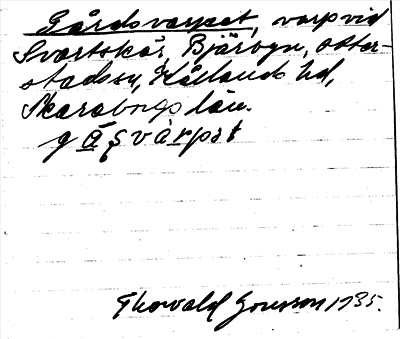 Gårdsvarpet, varp vid
Svartskär, Bjärbyn, Otter-
stads sn, Kållands hd,
Skaraborgs län.
gås̨várpət
Thorvald Jonsson 1935.